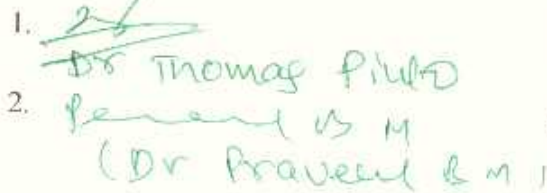 1.
Dr Thomas Pinto
2.
B M
(Dr Praveen B M)